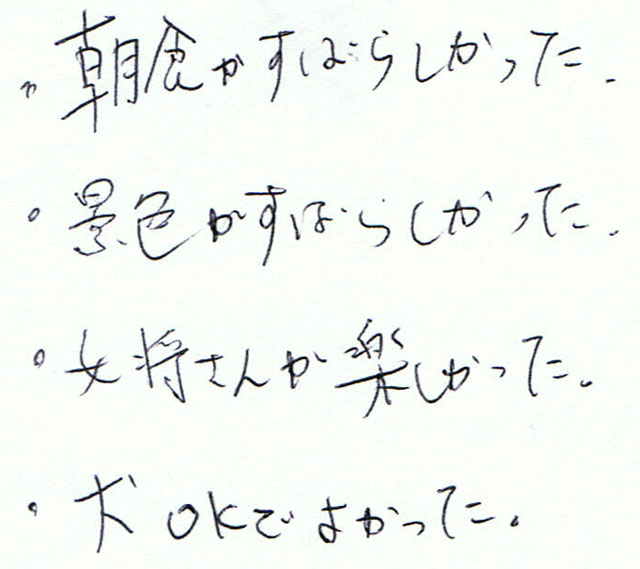 ・朝食がすばらしかった。
・景色がすばらしかった。
・女将さんが楽しかった。
・犬OKでよかった。